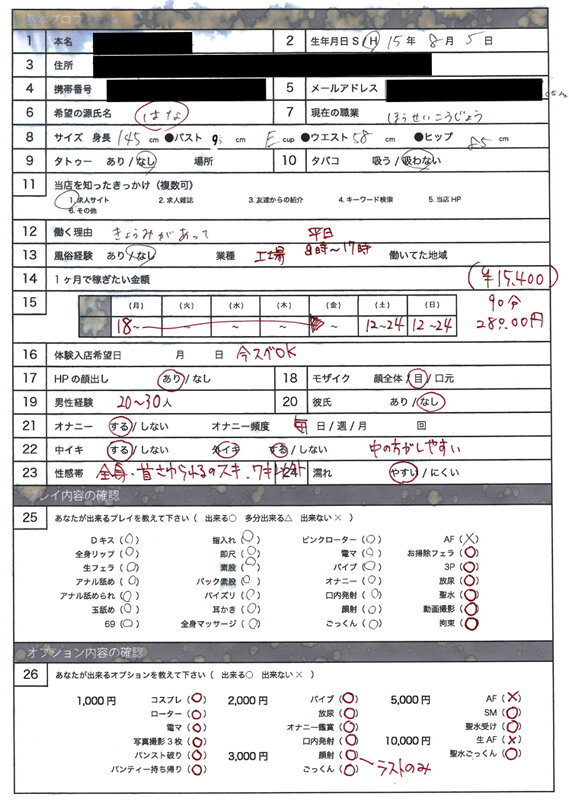 基本プロフィール
1 本名 2 生年月日 S / H 15年 8月 5日
3 住所
4 携帯番号 5 メールアドレス
6 希望の源氏名 はな 7 現在の職業 ほうせいこうじょう
8 サイズ 身長 145 cm ●バスト cm E cup ●ウエスト 58 cm ●ヒップ 85 cm
9 タトゥー あり / なし 場所 10 タバコ 吸う / 吸わない
11 当店を知ったきっかけ(複数可)
1. 求人サイト 2. 求人雑誌 3. 友達からの紹介 4. キーワード検索 5. 当店HP
6. その他
12 働く理由 きょうみがあって 平日
13 風俗経験 あり / なし 業種 工場 8時〜17時 働いてた地域
14 1ヶ月で稼ぎたい金額 (¥15,400)
15 (月) (火) (水) (木) (金) (土) (日) 90分
18〜 〜 〜 〜 〜 12〜24 12〜24 28000円
16 体験入店希望日 月 日 今スベOK
17 HPの顔出し あり / なし 18 モザイク 顔全体 / 目 / 口元
19 男性経験 20〜30人 20 彼氏 あり / なし
21 オナニー する / しない オナニー頻度 毎 日 / 週 / 月 回
22 中イキ する / しない 外イキ する / しない 中の方がしやすい
23 性感帯 全身・首さわられるのスキ、ワキ 24 濡れ やすい / にくい
プレイ内容の確認
25 あなたが出来るプレイを教えて下さい ( 出来る○ 多分出来る△ 出来ない× )
Dキス (○) 指入れ (○) ピンクローター (○) AF (×)
全身リップ (○) 即尺 (○) 電マ (○) お掃除フェラ (○)
生フェラ (○) 素股 (○) バイブ (○) 3P (○)
アナル舐め (○) バック素股 (○) オナニー (○) 放尿 (○)
アナル舐められ (○) パイズリ (○) 口内発射 (○) 聖水 (○)
玉舐め (○) 耳かき (○) 顔射 (○) 動画撮影 (○)
69 (○) 全身マッサージ (○) ごっくん (○) 拘束 (○)
オプション内容の確認
26 あなたが出来るオプションを教えて下さい ( 出来る○ 出来ない× )
1,000円 コスプレ (○) 2,000円 バイブ (○) 5,000円 AF (×)
ローター (○) 放尿 (○) SM (○)
電マ (○) オナニー鑑賞 (○) 聖水受け (○)
写真撮影3枚 (○) 口内発射 (○) 10,000円 生AF (×)
パンスト破り (○) 3,000円 顔射 (○) 聖水ごっくん (○)
パンティー持ち帰り (○) ごっくん (○) ラストのみ